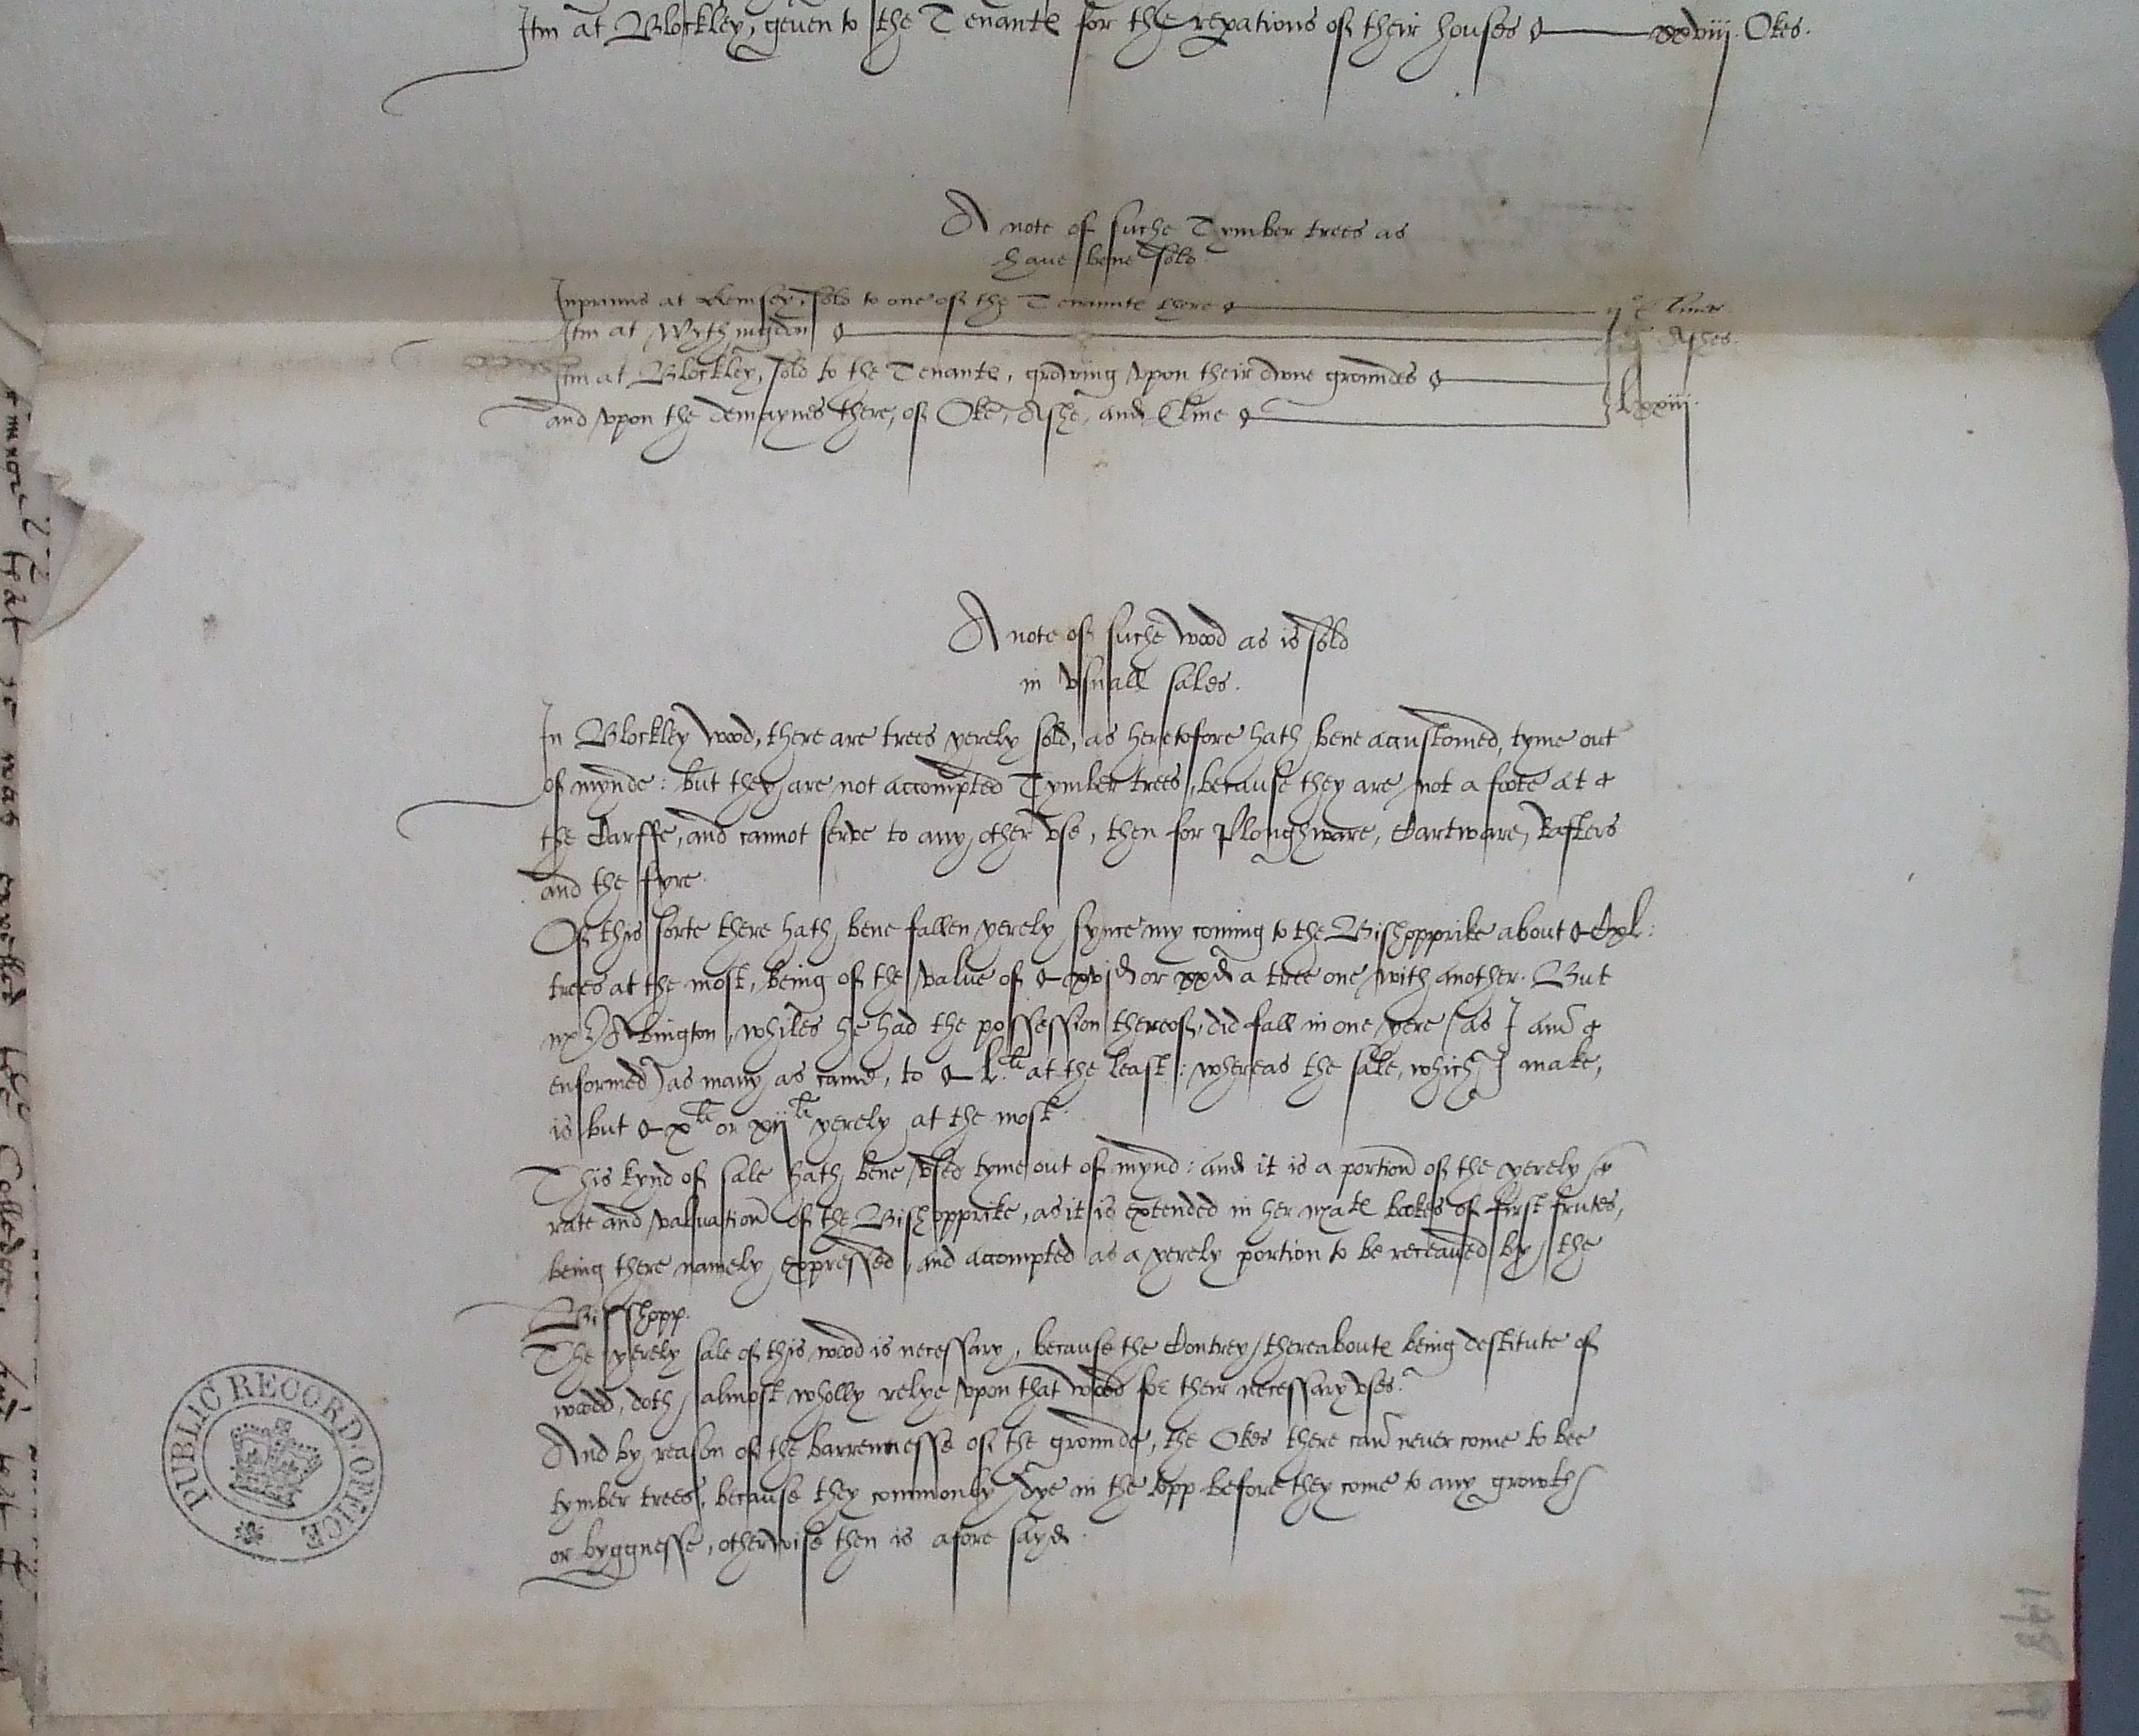 Itm at Blockley, geuen to the Tenantes for the repations of their houses xxviij. Okes.
A note of suche Tymber trees as
haue bene sold.
Inprimis at Kemsey, sold to one of the Tenauntes there ij Elmes
Itm at Wythingdon Ashes.
Itm at Blockley, sold to the Tenantes, growing vpon their owne groundes
and vpon the demaynes there, of Oke, Ashe, and Elme lxxiij.
A note of suche wood as is sold
in vsuall sales.
In Blockley wood, there are trees yerely sold, as heretofore hath bene accustomed, tyme out
of mynde: but they are not accompted Tymber trees, because they are not a foote at
the Carffe, and cannot serve to any other vse, then for Ploughware, Cartware, Rafters
and the fyre.
Of this sorte there hath bene fallen yerely synce my coming to the Bishopprike about Cxl:
trees at the most, being of the value of xvjd or xxd a tree one with another. But
mr Abington, whiles he had the possession thereof, did fall in one yere (as I am
enformed) as many as came, to l.li at the least: whereas the sale, which I make,
is but xli or xijli yerely at the most.
This kynd of sale hath bene vsed tyme out of mynd: and it is a portion of the yerely
rate and valuation of the Bishopprike, as it is extended in her Mates bookes of first frutes,
being there namely expressed, and accompted as a yerely portion to be receaued by the
Bisshopp.
The yerely sale of this wood is necessary, because the Contrey thereaboutes being destitute of
wood, doth almost wholly relye vpon that wood for their necessary vses.
And by reason of the barrennesse of the grounde, the Okes there can neuer come to bee
tymber trees, because they commonly dye in the topp before they come to any growth
or byggnesse, otherwise then is afore sayd.
PUBLIC RECORD OFFICE
198